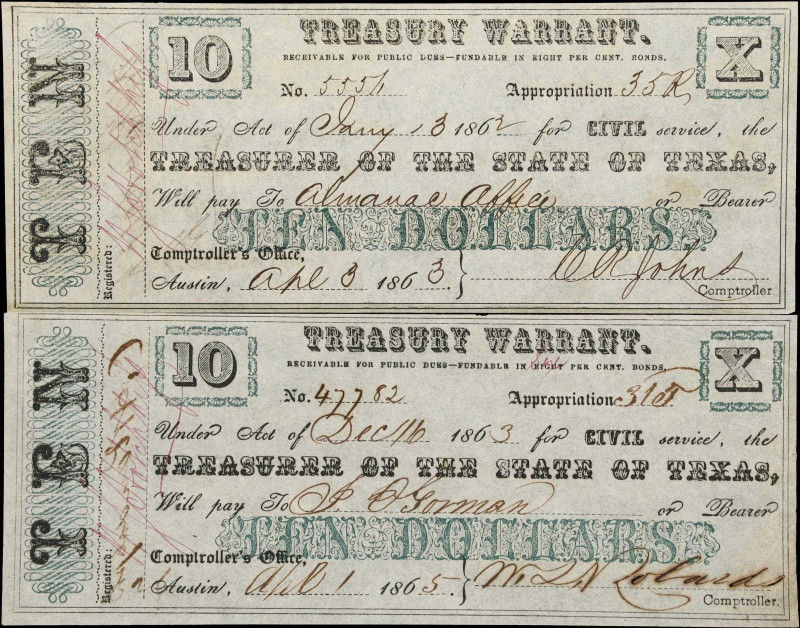 TREASURY WARRANT.
10
X
RECEIVABLE FOR PUBLIC DUES—FUNDABLE IN EIGHT PER CENT. BONDS.
No. 5551 Appropriation 35R
Under Act of Jany 13 1862 for CIVIL service, the
TREASURER OF THE STATE OF TEXAS,
Will pay To Almanac Office or Bearer
TEN DOLLARS
Comptroller's Office,
Austin, Apl 3 1863 } C R Johns
Comptroller
TEN
Registered:
TREASURY WARRANT.
10
X
RECEIVABLE FOR PUBLIC DUES—FUNDABLE IN EIGHT PER CENT. BONDS.
No. 47782 Appropriation
Under Act of Dec 16 1863 for CIVIL service, the
TREASURER OF THE STATE OF TEXAS,
Will pay To J. O'Gorman or Bearer
TEN DOLLARS
Comptroller's Office,
Austin, Apl 1 1865 }
Comptroller.
TEN
Registered: